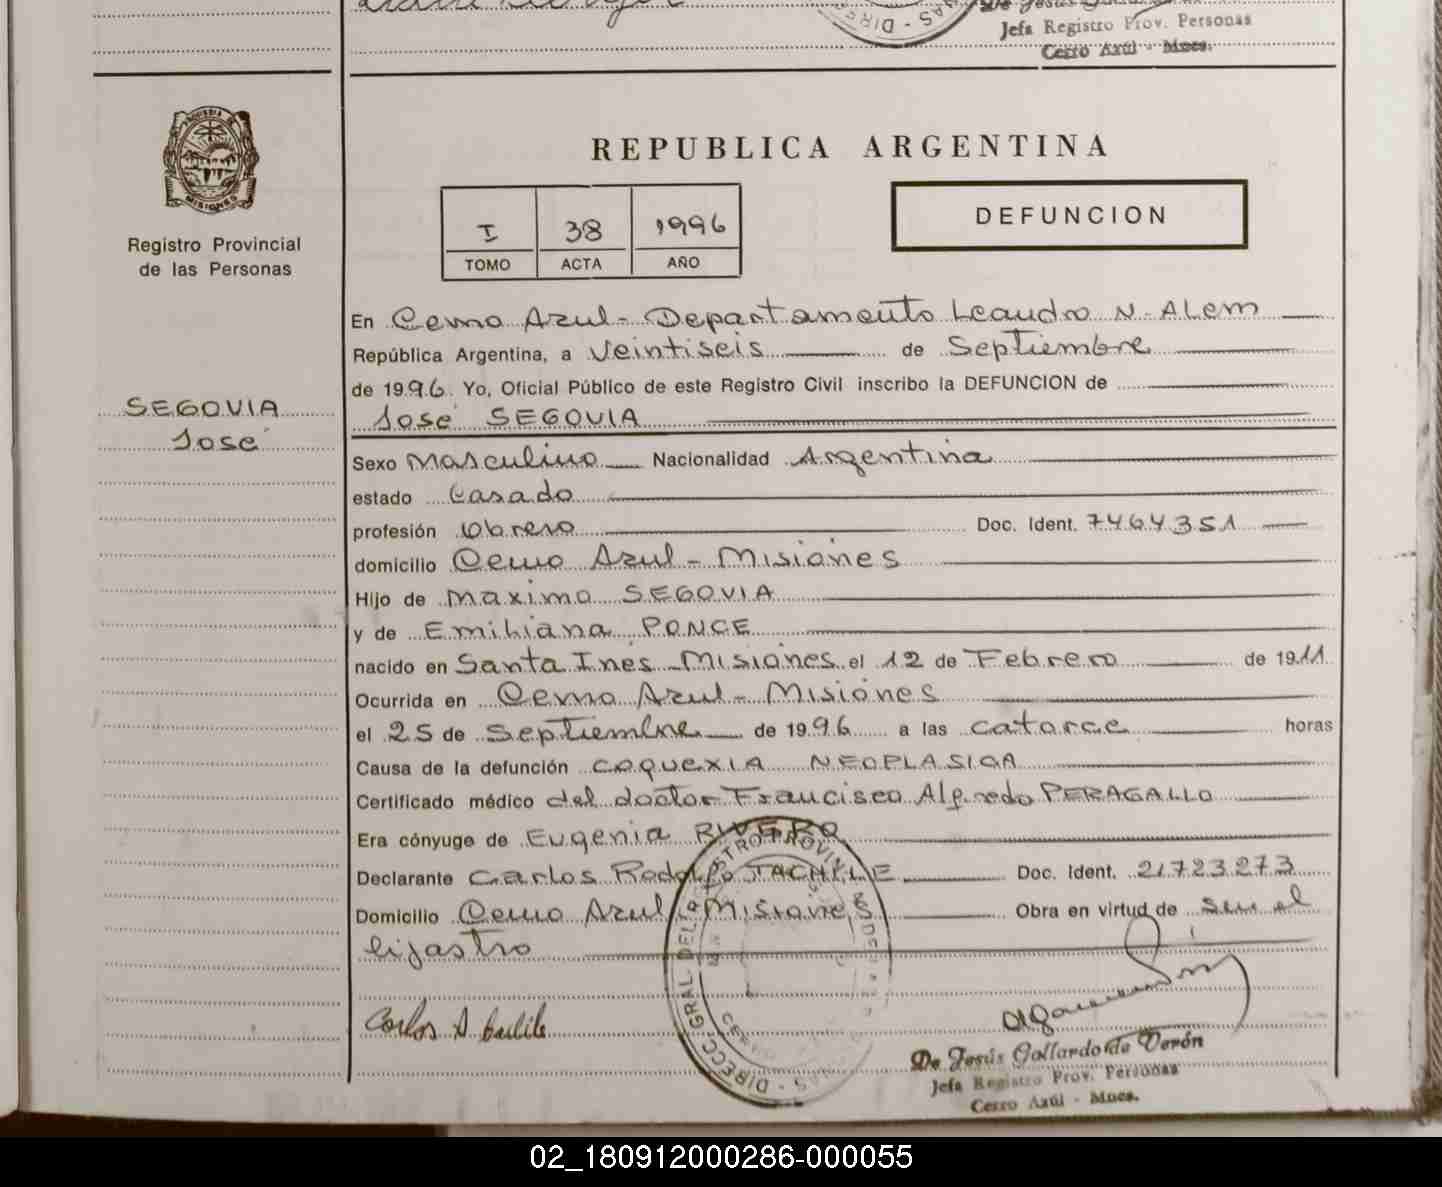 De Jesús
Jefa Registro Prov. Personas
Cerro Azúl - Mnes.
MISIONES
Registro Provincial
de las Personas
REPUBLICA ARGENTINA
I 38 1996
TOMO ACTA AÑO
DEFUNCION
En Cerro Azul - Departamento Leandro N. Alem
República Argentina, a Veintiseis de Septiembre
de 1996. Yo, Oficial Público de este Registro Civil inscribo la DEFUNCION de
José SEGOVIA
SEGOVIA
José
Sexo Masculino Nacionalidad Argentina
estado Casado
profesión Obrero Doc. Ident. 7464351
domicilio Cerro Azul - Misiones
Hijo de Maximo SEGOVIA
y de Emiliana PONCE
nacido en Santa Inés - Misiones el 12 de Febrero de 1911
Ocurrida en Cerro Azul - Misiones
el 25 de Septiembre de 1996 a las catorce horas
Causa de la defunción COQUEXIA NEOPLASICA
Certificado médico del doctor Francisco Alfredo PERAGALLO
Era cónyuge de Eugenia RIVERO
Declarante Carlos Rodolfo Doc. Ident. 21723273
Domicilio Cerro Azul - Misiones Obra en virtud de ser el
hijastro
Carlos
De Jesús Gallardo de Verón
Jefa Registro Prov. Personas
Cerro Azúl - Mnes.
02_180912000286-000055